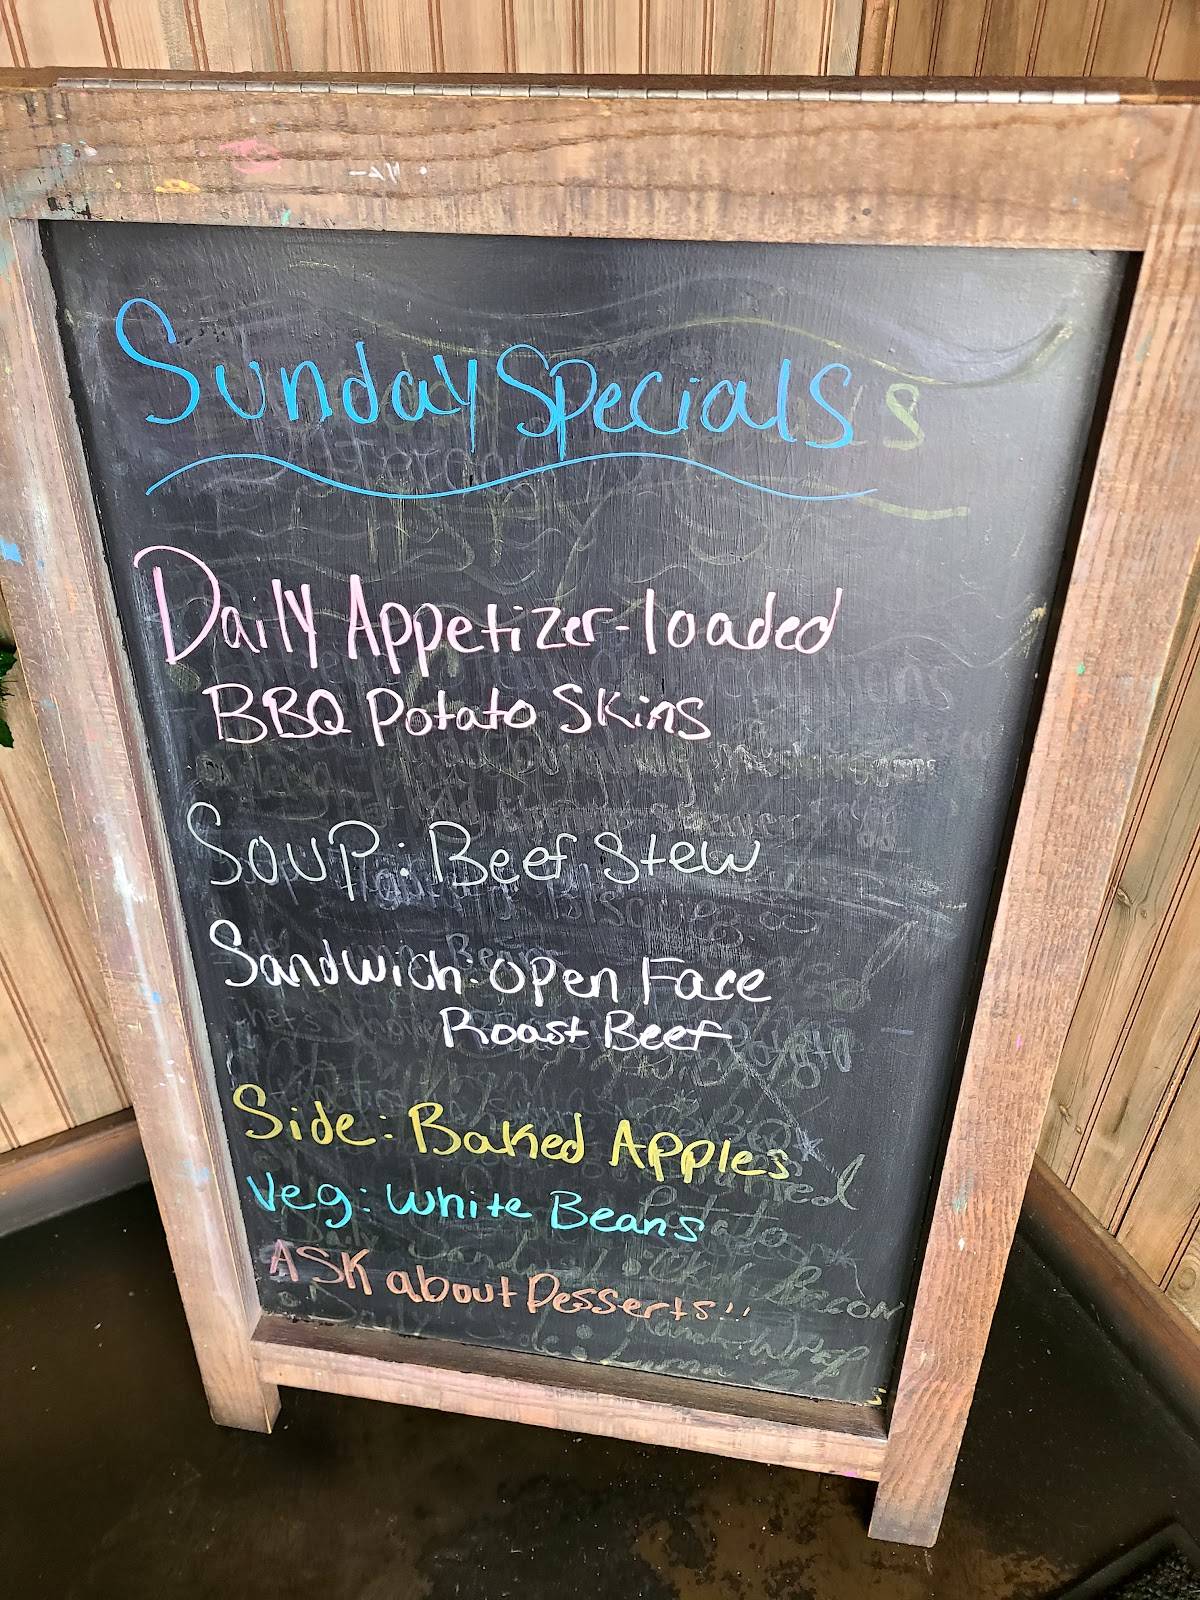 Sunday Specials
Daily Appetizer-loaded
BBQ Potato Skins
Soup: Beef Stew
Sandwich: Open Face
Roast Beef
Side: Baked Apples
Veg: White Beans
ASK about Desserts!!